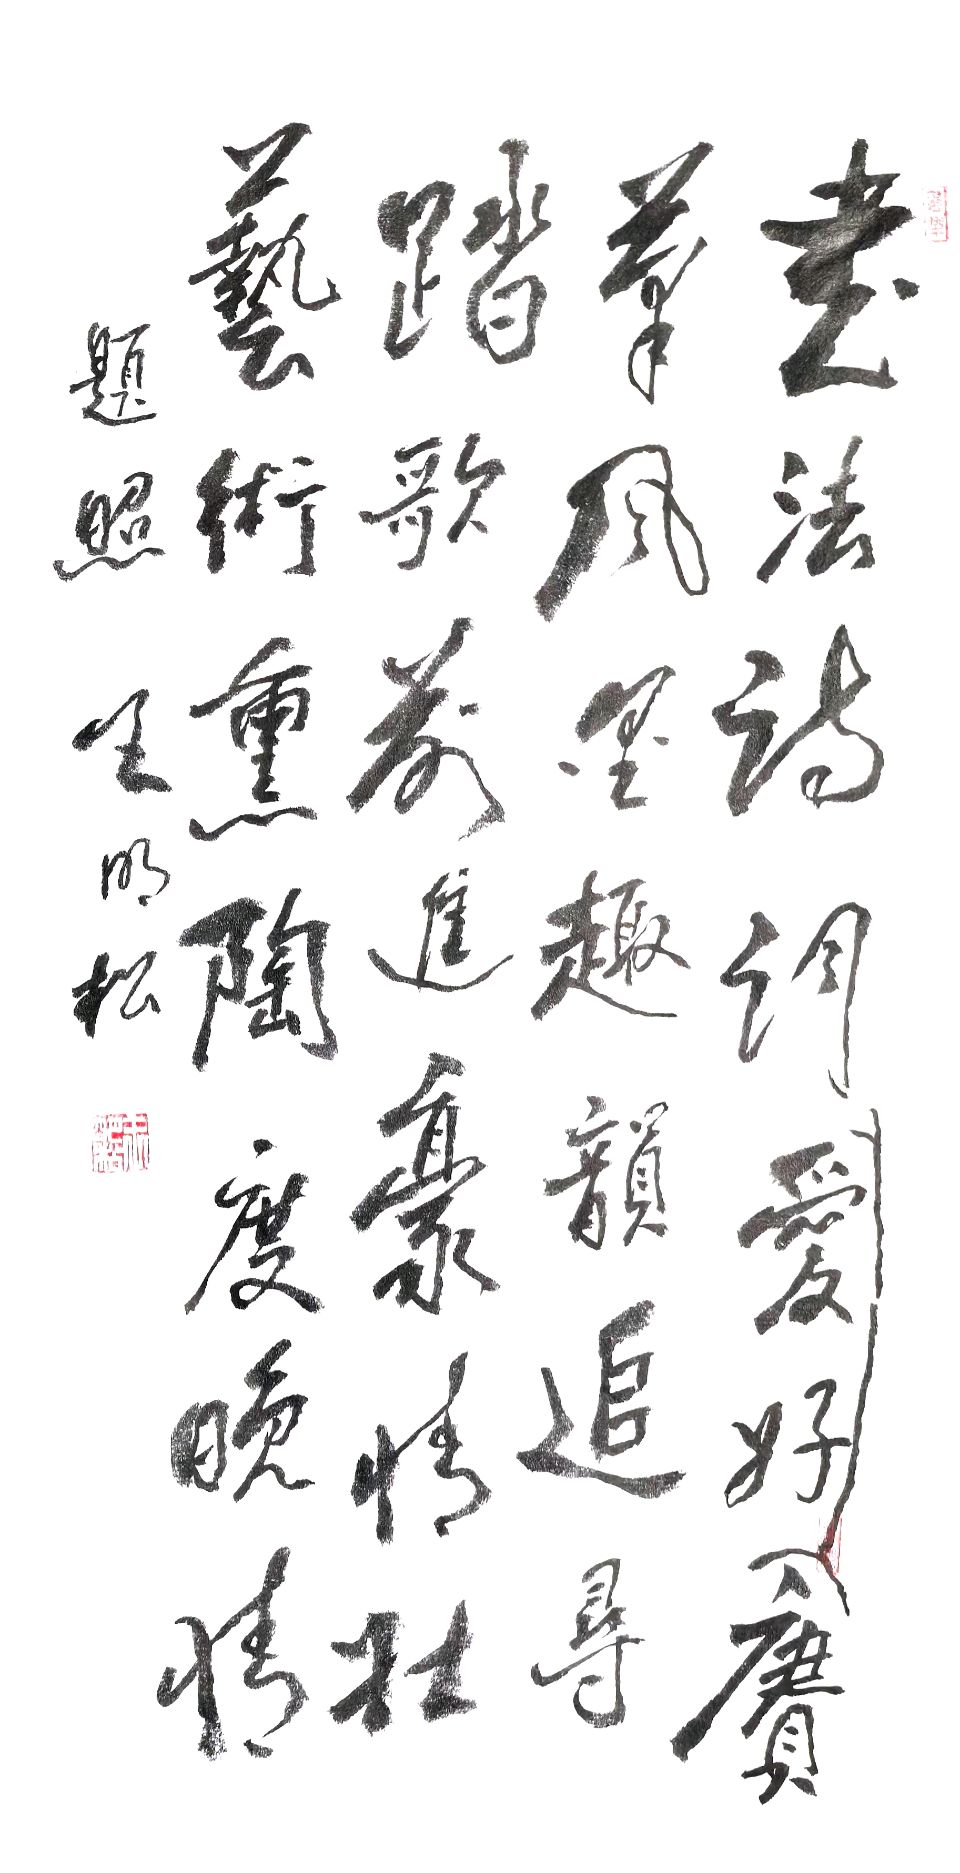 書法詩詞愛好賡
筆風墨趣韻追尋
踏歌前進豪情壯
藝術熏陶度晚情
題照 王明松